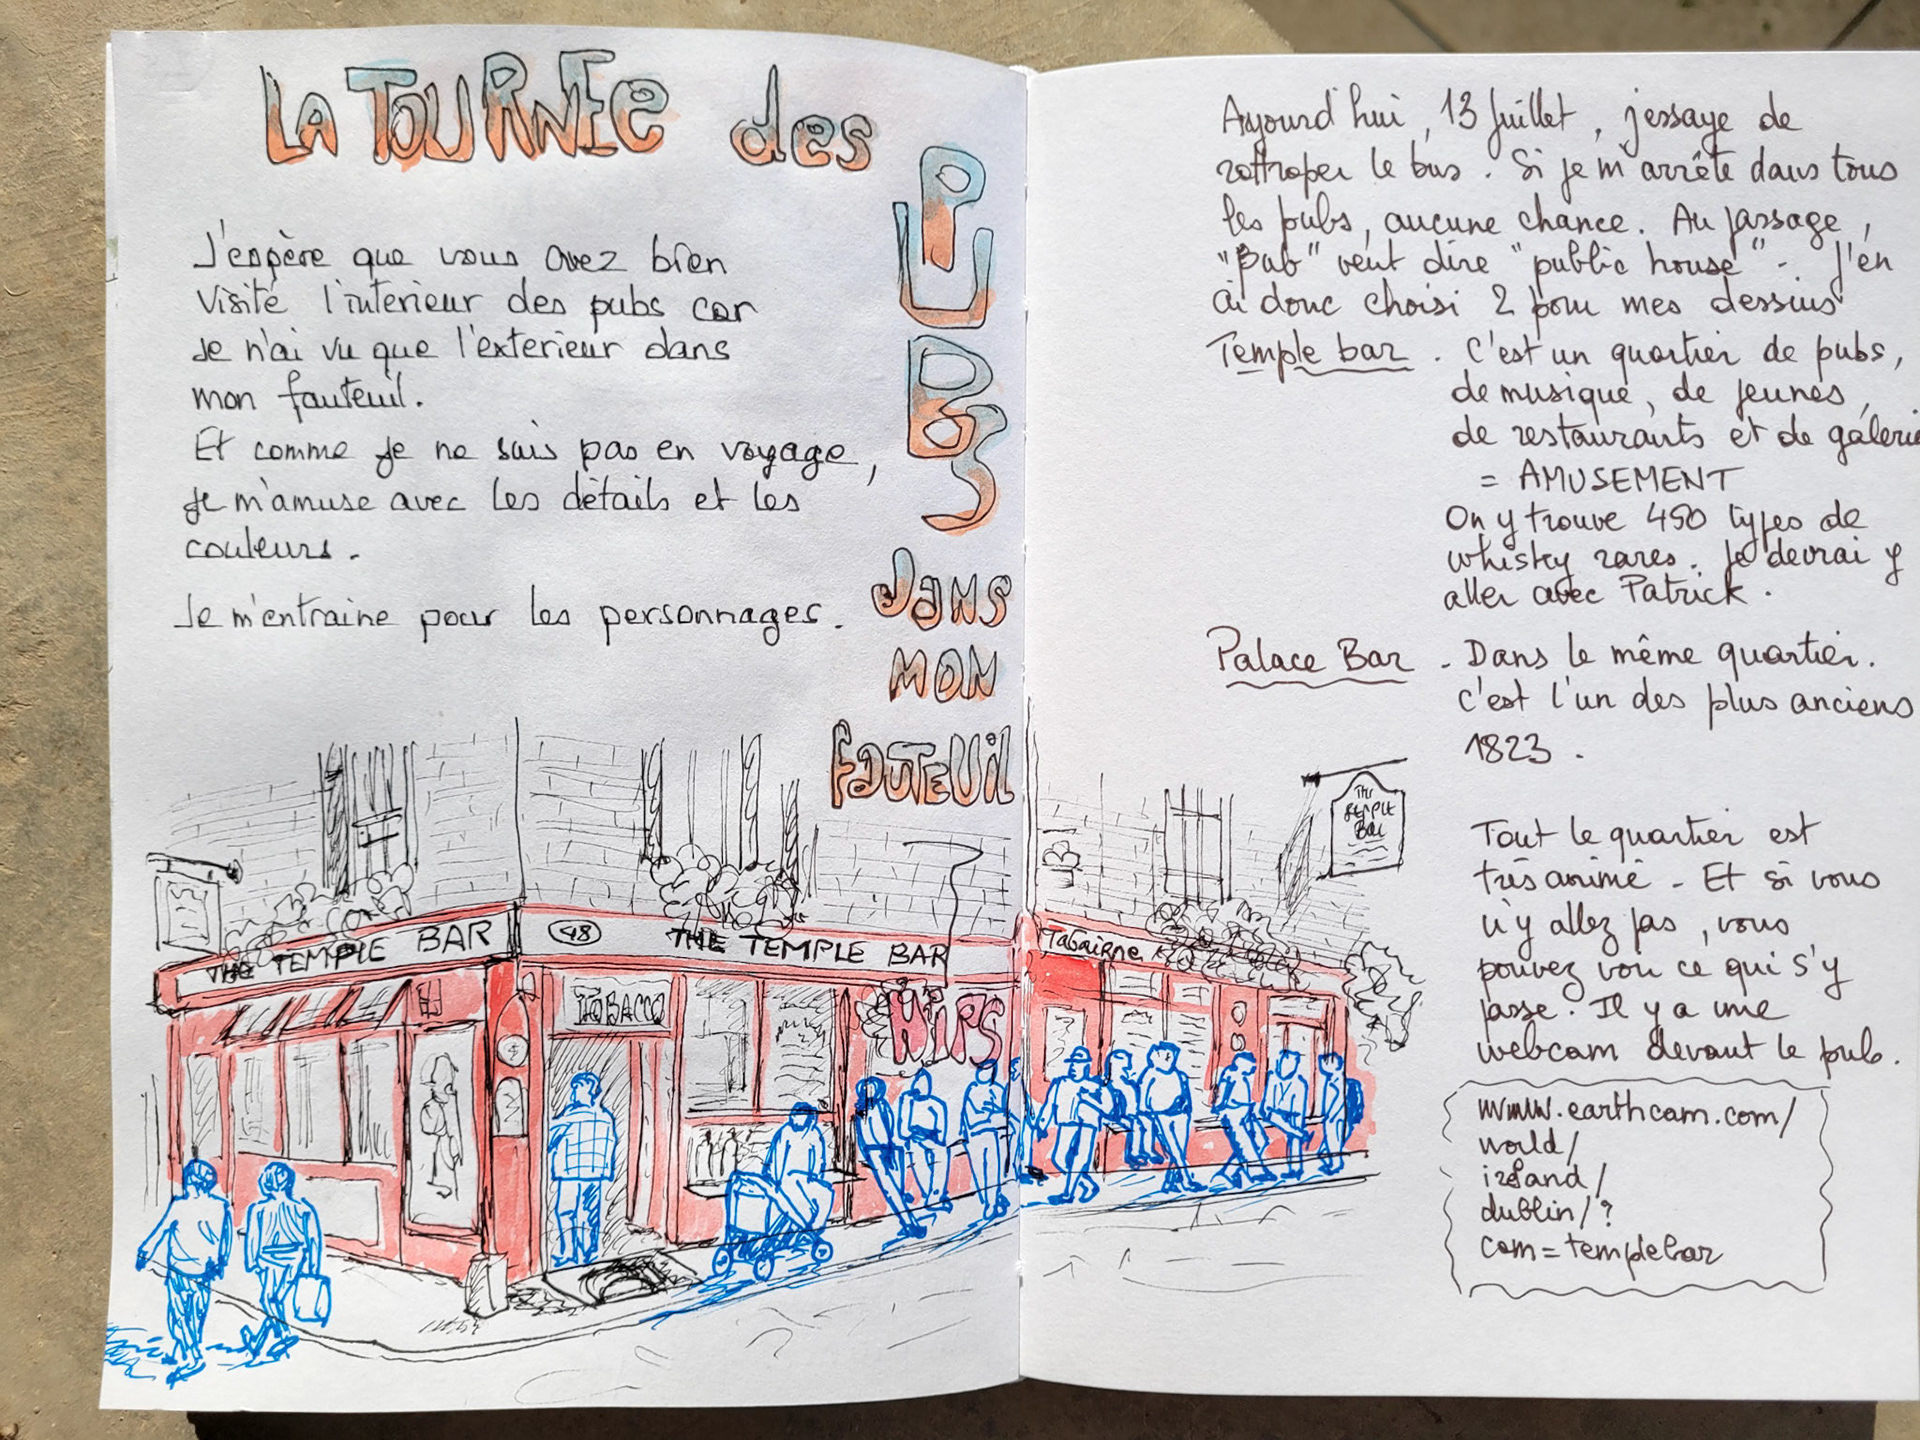 LA TOURNEE des
PUBS
DANS
MON
FAUTEUIL
J'espère que vous avez bien
visité l'interieur des pubs car
Je n'ai vu que l'exterieur dans
mon fauteuil.
Et comme je ne suis pas en voyage,
je m'amuse avec les détails et les
couleurs.
Je m'entraine pour les personnages.
THE TEMPLE BAR
48
THE TEMPLE BAR
TOBACCO
Aujourd'hui, 13 Juillet, j'essaye de
rattraper le bus. Si je m'arrête dans tous
les pubs, aucune chance. Au passage,
"Pub" veut dire "public house" -. J'en
ai donc choisi 2 pour mes dessins
Temple bar. C'est un quartier de pubs,
de musique, de jeunes,
de restaurants et de galerie
= AMUSEMENT
On y trouve 450 types de
whisky rares. Je devrai y
aller avec Patrick.
Palace Bar - Dans le même quartier.
C'est l'un des plus anciens
1823.
THE
TEMPLE
BAR
Tout le quartier est
très animé - Et si vous
n'y allez pas, vous
pouvez voir ce qui s'y
passe. Il y a une
webcam devant le pub.
www.earthcam.com/
world/
ireland/
dublin/?
cam=templebar